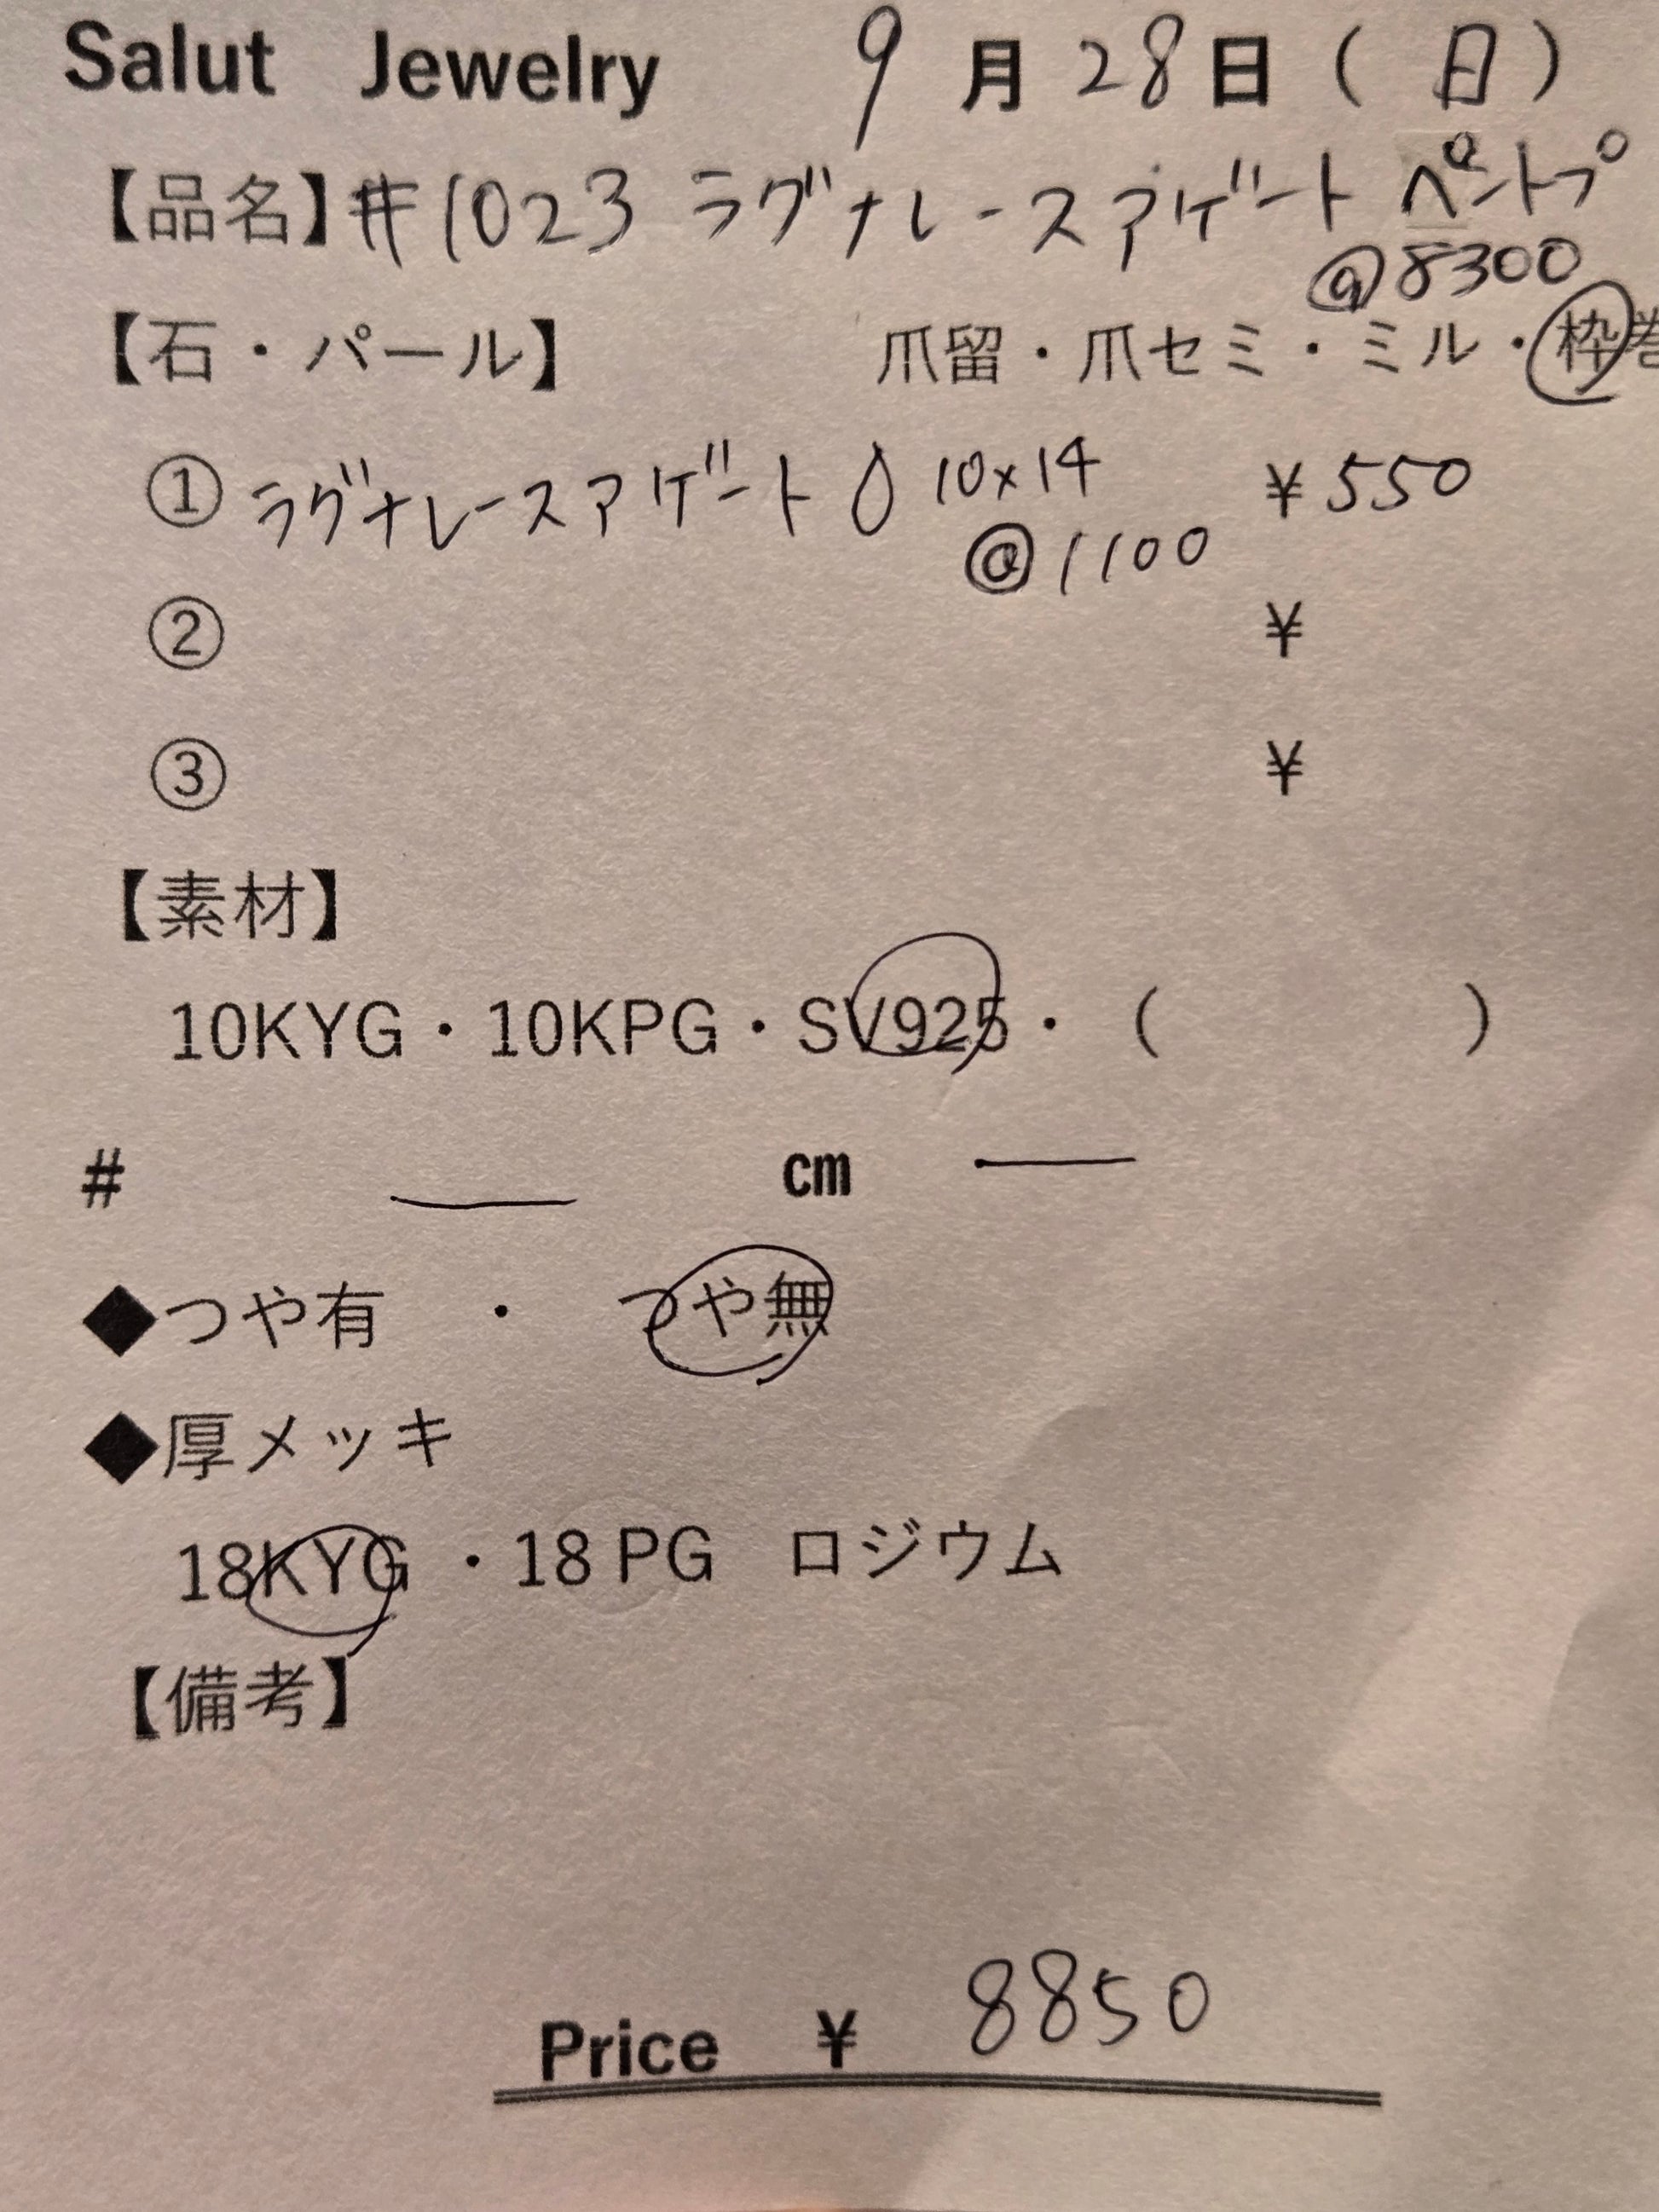 Salut Jewelry 9月28日(日)
【品名】#1023 ラグナレースアゲート ペントプ
@8300
【石・パール】 爪留・爪セミ・ミル・枠巻
① ラグナレースアゲート 10×14 ¥550
@1100
② ¥
③ ¥
【素材】
10KYG・10KPG・SV925・( )
# — cm —
◆つや有 ・ つや無
◆厚メッキ
18KYG ・18 PG ロジウム
【備考】
Price ¥ 8850